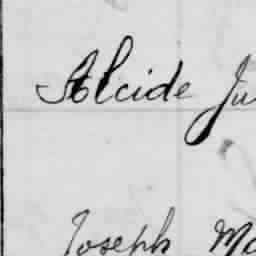 Alcide Ju
Joseph Mc